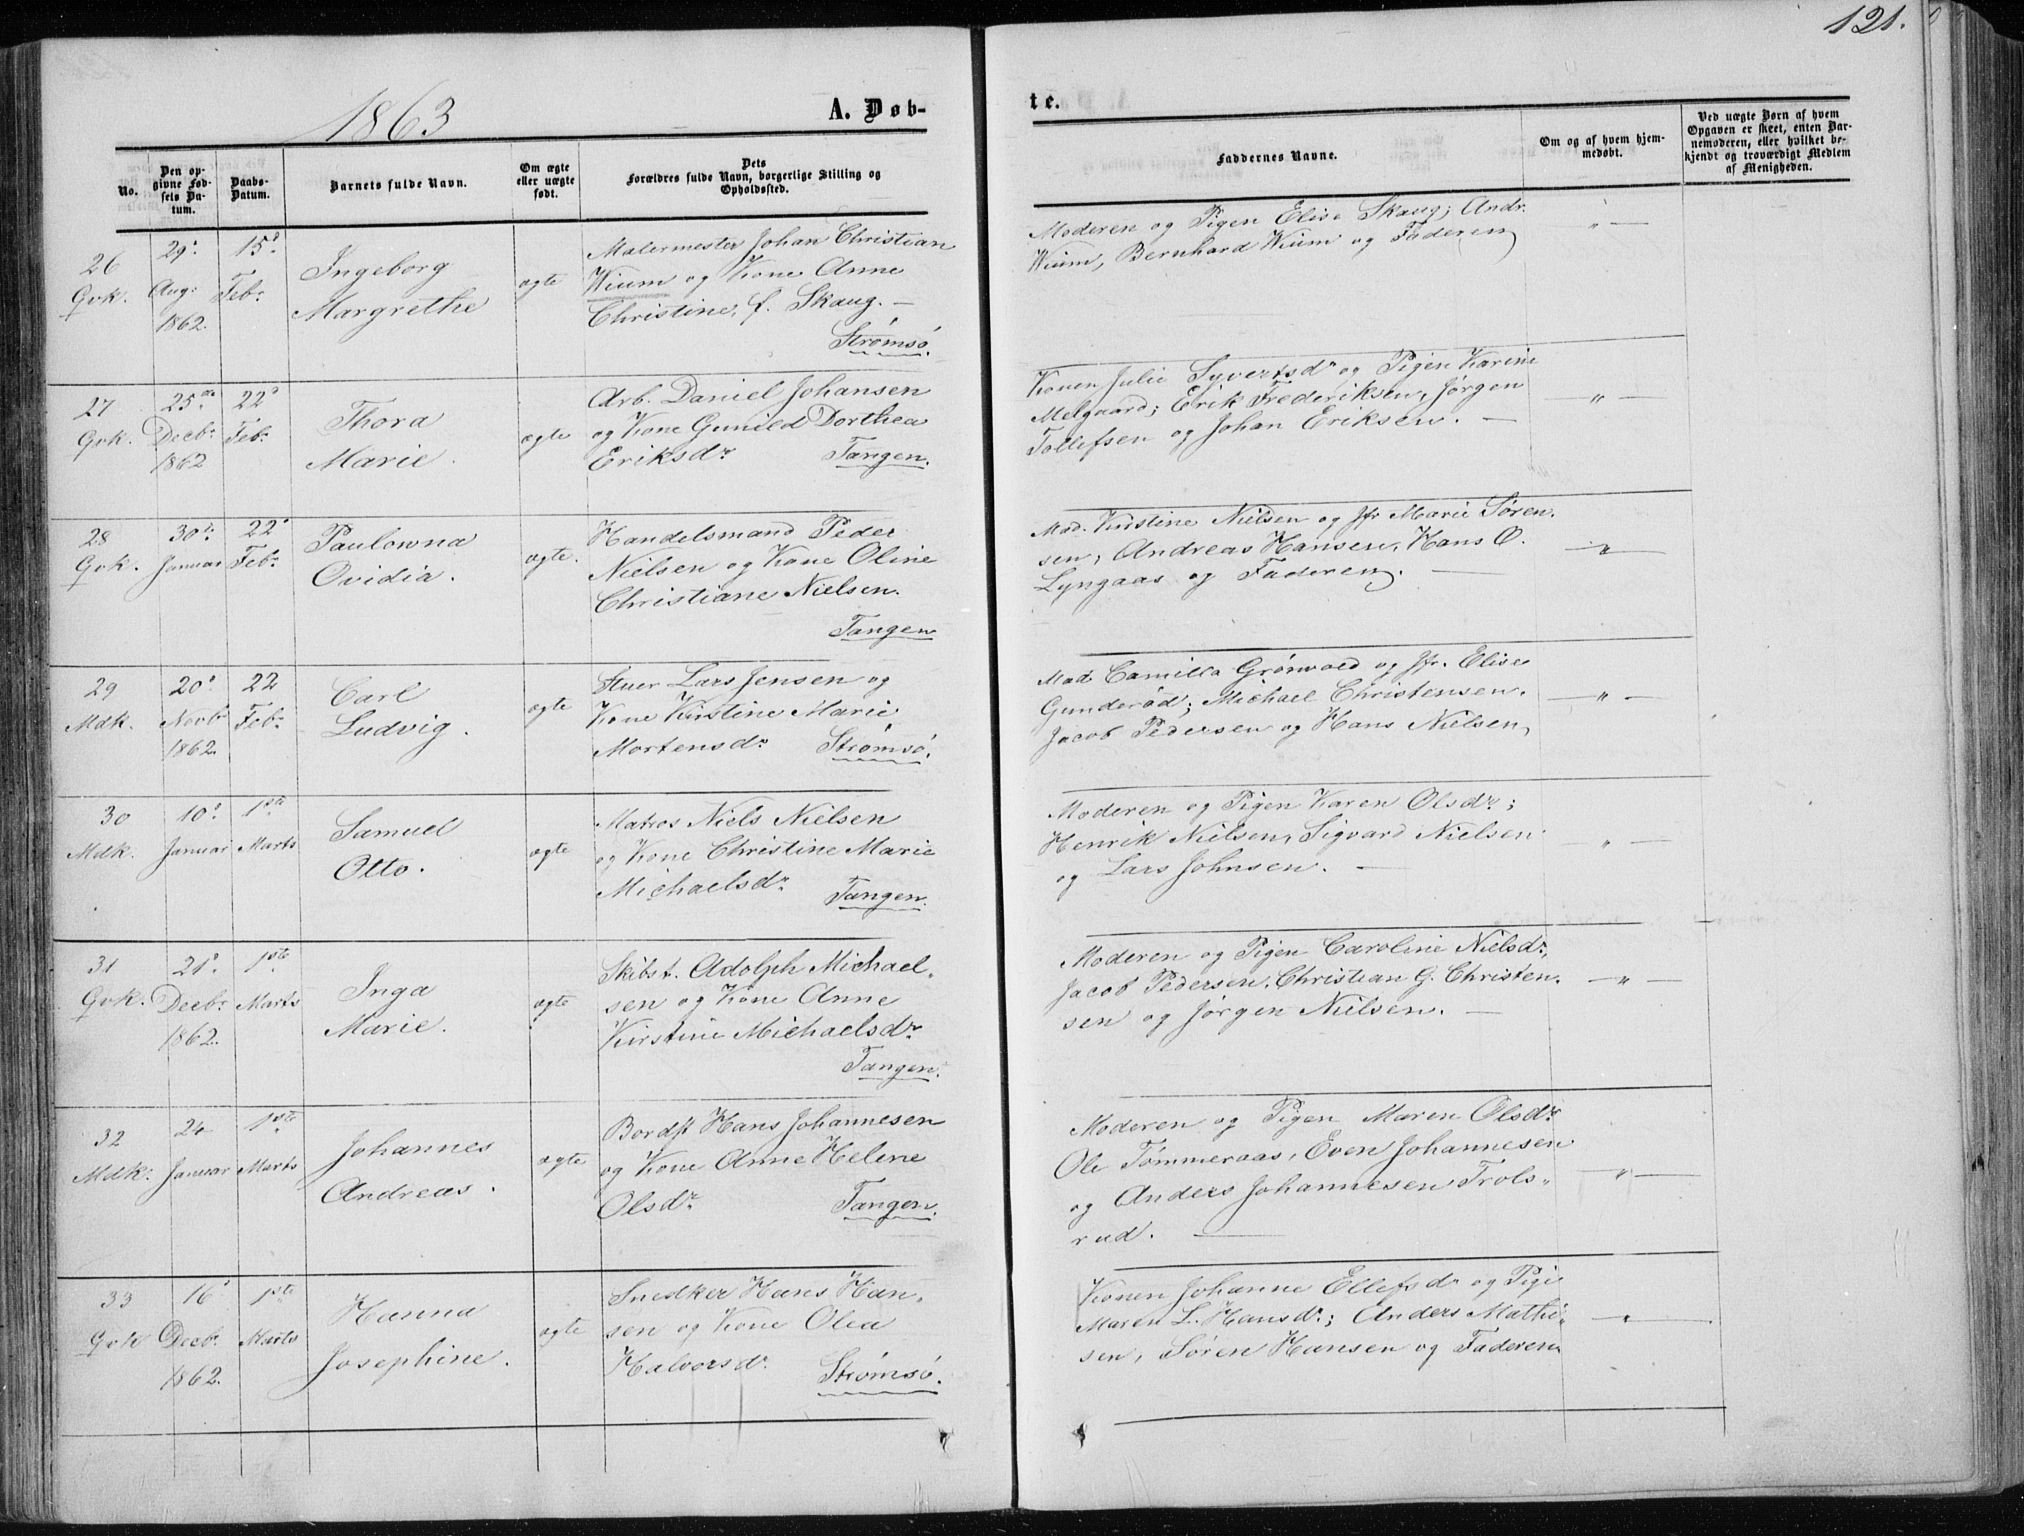 121.
1863
A. Døb-
te.
No.
Den op-
givne Fød-
sels Da-
tum.
Daabs-
Datum.
Barnets fulde Navn.
Om ægte
eller uægte
født.
Dets
Forældres fulde Navn, borgerlige Stilling og
Opholdssted.
Faddernes Navne.
Om og af hvem hjem-
medøbt.
Ved uægte Børn af hvem
Opgaven er skeet, enten Bar-
nemoderen, eller hvilket be-
kjendt og troværdigt Medlem
af Menigheden.
26
Qvk.
29.
Aug:
1862.
15.
Febr
Ingeborg
Margrethe
ægte
Malermester Johan Christian
Wium og Kone Anne
Christine, f. Skaug. —
Strømsø.
Moderen og Pigen Elise Skaug; Andr.
Wium, Bernhard Wium og Faderen
" —
27
Qvk.
25de
Decbr
1862
22
Febr
Thora
Marie.
ægte
Arb. Daniel Johansen
og Kone Gunild Dorthea
Eriksdr
Tangen.
Konen Julie Syvertsdr og Pigen Karine
Melgaard; Erik Frederiksen, Jørgen
Tollefsen og Johan Eriksen. —
— " —
28
Qvk.
30.
Januar
22
Febr
Paulowna
Ovidia.
ægte.
Handelsmand Peder
Nielsen og Kone Oline
Christiane Nielsen.
Tangen
Mad. Kirstine Nielsen og Jfr Marie Søren-
sen, Andreas Hansen, Hans O.
Lyngaas og Faderen. —
— " —
29
Mdk.
20.
Novbr
1862.
22
Febr
Carl
Ludvig.
ægte
Stuer Lars Jensen og
Kone Kirstine Marie
Mortensdr
Strømsø.
Mad Camilla Grønvold og Jfr. Elise
Gunderød; Michael Christensen.
Jacob Pedersen og Hans Nielsen,
— " —
30
Mdk.
10.
Januar
1ste
Marts
Samuel
Otto.
ægte
Matros Niels Nielsen
og Kone Christine Marie
Michaelsdr
Tangen.
Moderen og Pigen Karen Olsdr;
Henrik Nielsen, Sigvard Nielsen
og Lars Johnsen. —
" —
31
Qvk.
21.
Decbr
1862.
1ste
Marts
Inga
Marie.
ægte
Skibst. Adolph Michael-
sen og Kone Anne
Kirstine Michaelsdr
Tangen.
Moderen og Pigen Caroline Nielsdr,
Jacob Pedersen, Christian G. Christen-
sen og Jørgen Nielsen. —
— " —
32
Mdk.
24
Januar
1ste
Marts
Johannes
Andreas.
ægte
Bordst Hans Johannesen
og Kone Anne Helene
Olsdr
Tangen.
Moderen og Pigen Maren Olsdr
Ole Tømmeraas, Even Johannesen
og Anders Johannesen Trols-
rud. —
— " —
33
Qvk
16
Decbr
1862.
1ste
Marts
Hanna
Josephine.
ægte
Snedker Hans Han-
sen og Kone Olea
Halvorsdr
Strømsø.
Konen Johanne Ellefsdr og Pige
Maren L. Hansdr; Anders Mathi-
sen, Søren Hansen og Faderen
— " —